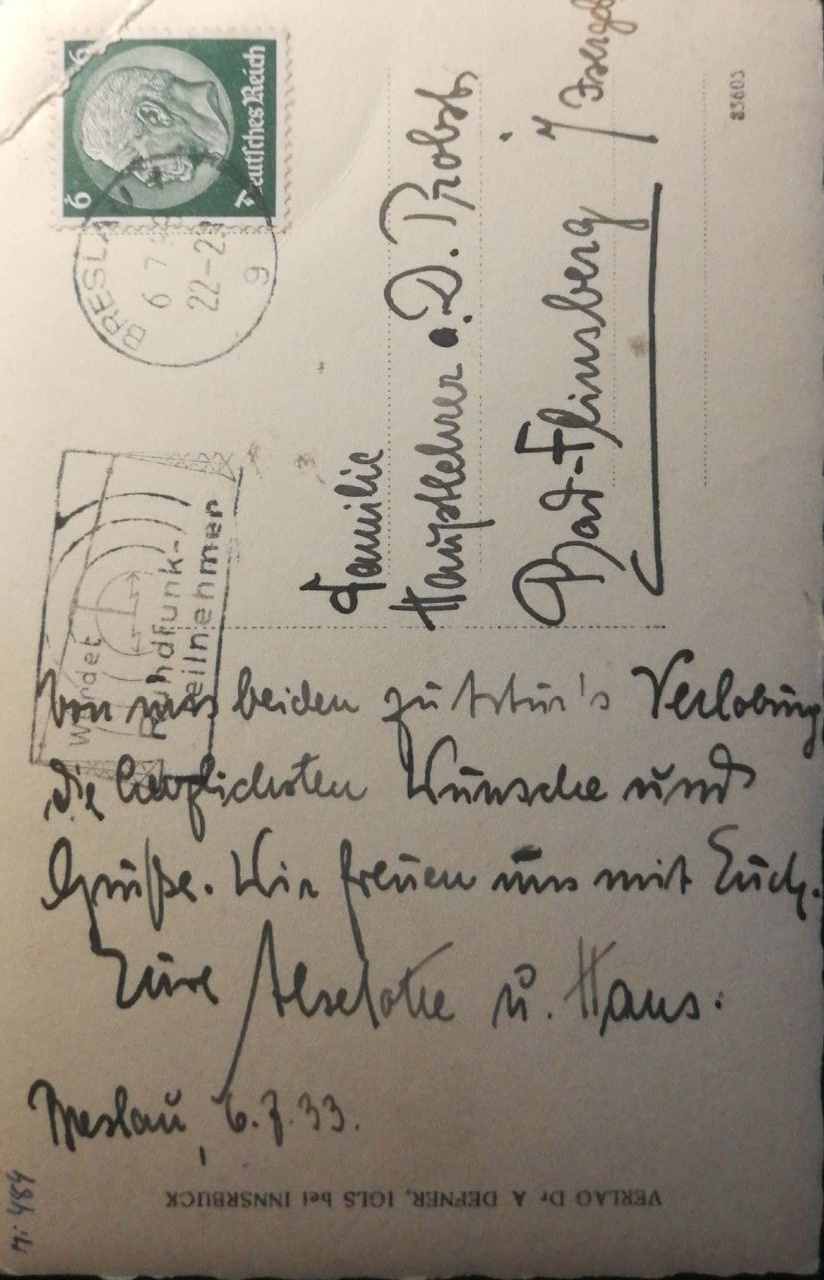 Deutsches Reich
6 6
BRESLA
6 7
22-2
9
Werdet
Rundfunk-
teilnehmer
Familie
Hauptlehrer a. D. Probst,
Bad-Flinsberg i/Isergeb
83603
Von uns beiden zu Artur's Verlobung
die herzlichsten Wünsche und
Grüße. Wir freuen uns mit Euch.
Eure Ilselotte u. Hans.
Breslau, 6.7.33.
VERLAG Dr A DEFNER, IGLS bei INNSRBUCK
Mi 484